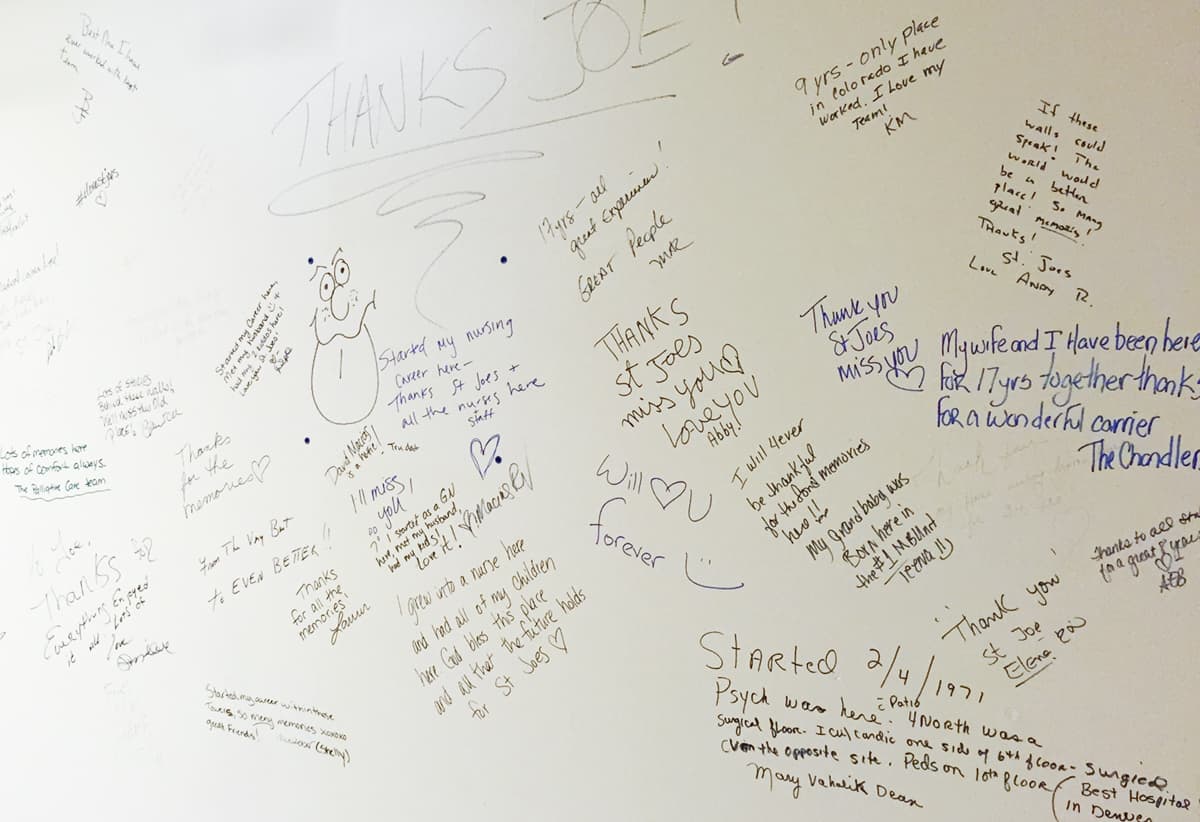 THANKS JOE!
Best
I have
ever worked with best
team
9 yrs - only place
in Colorado I have
worked. I Love my
Team!
KM
If these
walls could
speak! The
world would
be a better
place! So many
great memories!
Thanks!
St. Joes
Love Andy R.
17 yrs - all
great experiences!
GREAT People
MAR
Started my career here,
met my husband +
had my
here!
Started my nursing
career here -
Thanks St Joes +
all the nurses here
staff
THANKS
St JOES
miss you
Love you
Abby!
Thank you
St JOES
miss you
My wife and I Have been here
For 17yrs together thank
for a wonderful carrier
The Chandler
Lots of stories
Behind these walls!
We'll miss this old
place!
Lots of memories here
of comfort always.
The Palliative Care team
Thanks
for the
memories
I'll miss
you!
I started as a GN
here, met my husband,
had my kids!
Love it!
Macias RN
Will U
forever
I will 4ever
be thankful
for the fond memories
here!!
My Grand baby was
Born here in
the #1 M.B Unit
Teena!!
Thanks to all
for a great 8 years
I
From The Very Best
to EVEN BETTER!!
Thanks
Everything Enjoyed
it all Lots of
love
Thanks
for all the
memories!
I grew into a nurse here
and had all of my children
here God bless this place
and all that the future holds
for St Joes
Thank you
St Joe
Elena RN
Started my career within these
Towers, so many memories xoxoxo
great friends!
(Shelly)
Started 2/4/1971
Psych was here. c̄ Patio 4 North was a
Surgical floor. ICU/cardic one side of 6th floor - Surgical
on the opposite site. Peds on 10th floor (Best Hospital
in Denver
Mary Vahalik Dean